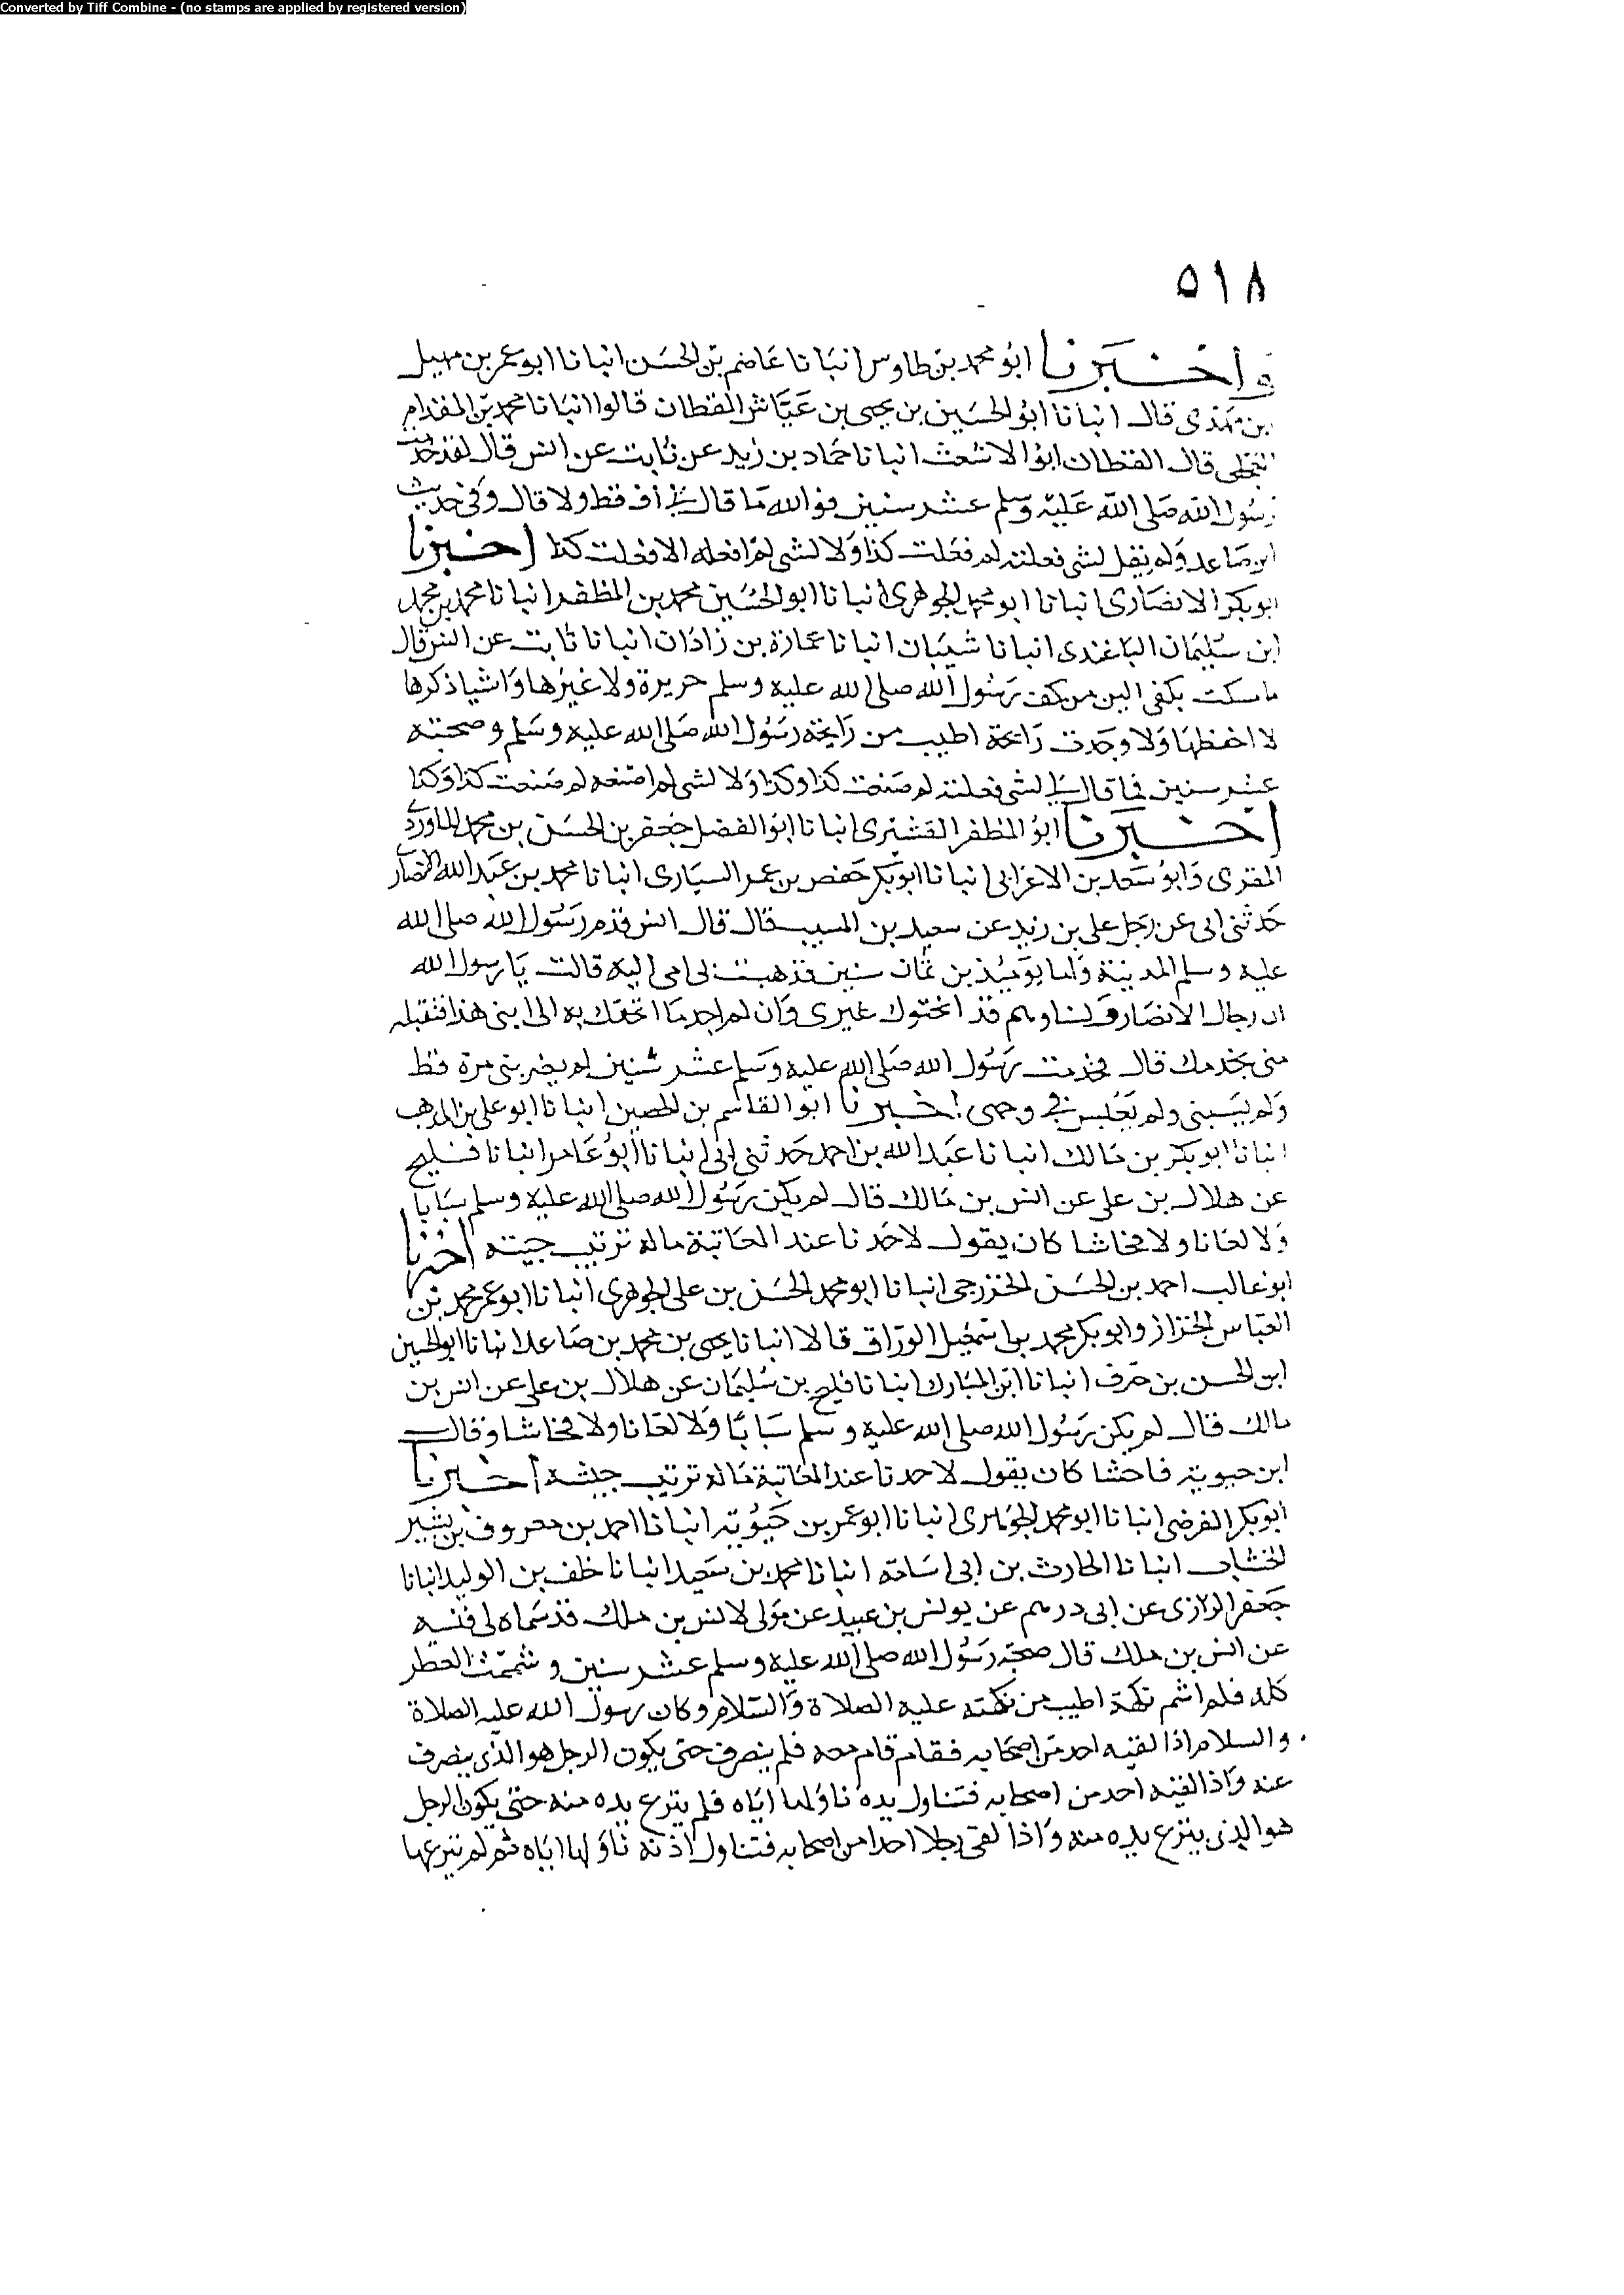 Converted by Tiff Combine - (no stamps are applied by registered version)
٥١٨
واخبرنا ابو محمد بن طاوس انبانا عاصم بن الحسن انبانا ابو عمر بن
بن مهدى قال انبانا ابو الحسين بن يحيى بن عياش القطان قالوا انبانا محمد بن المقدام
قال القطان ابو الاشعث انبانا حماد بن زيد عن ثابت عن انس قال لقد خدمت
رسول الله صلى الله عليه وسلم عشر سنين فوالله ما قال لي أف قط ولا قال وفي حديث
ابن صاعد ولم يقل لشى فعلته لم فعلت كذا ولا لشى لم افعله الا فعلت كذا اخبرنا
ابو بكر الانصارى انبانا ابو محمد الجوهرى انبانا ابو الحسين محمد بن المظفر انبانا محمد بن محمد
ابن سليمان الباغندى انبانا شيبان انبانا عمارة بن زاذان انبانا ثابت عن انس قال
ما مسكت بكفى الين من كف رسول الله صلى الله عليه وسلم حريرة ولا غيرها واشيا ذكرها
لا احفظها ولا وجدت رائحة اطيب من رايحة رسول الله صلى الله عليه وسلم وصحبته
عشر سنين فما قال لي لشى فعلته لم صنعت كذا وكذا ولا لشى لم اصنعه لم صنعت كذا وكذا
اخبرنا ابو المظفر القشيرى انبانا ابو الفضل جعفر بن الحسن بن محمد الماوردى
المقرى وابو سعد بن الاعرابى انبانا ابو بكر حفص بن عمر السيارى انبانا محمد بن عبد الله الانصارى
حدثنى ابى عن رجل على بن زيد عن سعيد بن المسيب قال قال انس قدم رسول الله صلى الله
عليه وسلم المدينة وانا يوميذ بن ثمان سنين فذهبت بى امى اليه قالت يا رسول الله
ان رجال الانصار ونساوهم قد اتحفوك غيرى وان لم اجد ما اتحفك به الى ابنى هذا فتقبله
منى يخدمك قال فخدمت رسول الله صلى الله عليه وسلم عشر سنين لم يضربنى مرة قط
ولم يسبنى ولم يعبس فى وجهى اخبرنا ابو القاسم بن الحصين انبانا ابو على بن المذهب
انبانا ابو بكر بن مالك انبانا عبد الله بن احمد حدثنى ابى انبانا ابو عامر انبانا فليح
عن هلال بن على عن انس بن مالك قال لم يكن رسول الله صلى الله عليه وسلم سبابا
ولا لعانا ولا فحاشا كان يقول لاحدنا عند المعاتبة ماله ترتب جبينه اخبرنا
ابو غالب احمد بن الحسن الخزرجى انبانا ابو محمد الحسن بن على الجوهرى انبانا ابو عمر محمد بن
العباس الخزاز وابو بكر محمد بن اسمعيل الوراق قالا انبانا يحيى بن محمد بن صاعد انبانا ابو الحسين
ابن الحسن بن حرف انبانا ابن المبارك انبانا فليح بن سليمان عن هلال بن على عن انس بن
مالك قال لم يكن رسول الله صلى الله عليه وسلم سبابا ولا لعانا ولا فحاشا وقال
ابن حيويه فاحشا كان يقول لاحدنا عند المعاتبة ماله ترتب جبينه اخبرنا
ابو بكر الفرضى انبانا ابو محمد الجوهرى انبانا ابو عمر بن حيويه انبانا احمد بن معروف بن بشير
الخشاب انبانا الحارث بن ابى اسامة انبانا محمد بن سعيد انبانا خلف بن الوليد انبانا
جعفر الرازى عن ابى درهم عن يونس بن عبيد عن مولى لانس بن ملك قد سماه لى فنسيه
عن انس بن ملك قال صحبة رسول الله صلى الله عليه وسلم عشر سنين وشممت العطر
كله فلم اشم نكهة اطيب من نكهته عليه الصلاة والسلام وكان رسول الله عليه الصلاة
والسلام اذا لقيه احد من اصحابه فقام قام معه فلم ينصرف حتى يكون الرجل هو الذى ينصرف
عنه واذا لقيه احد من اصحابه فتناول يده ناولها اياه فلم ينزع يده منه حتى يكون الرجل
هو الذى ينزع يده منه واذا لقى رجلا احدا من اصحابه فتناول اذنه ناولها اياه ثم لم ينزعها